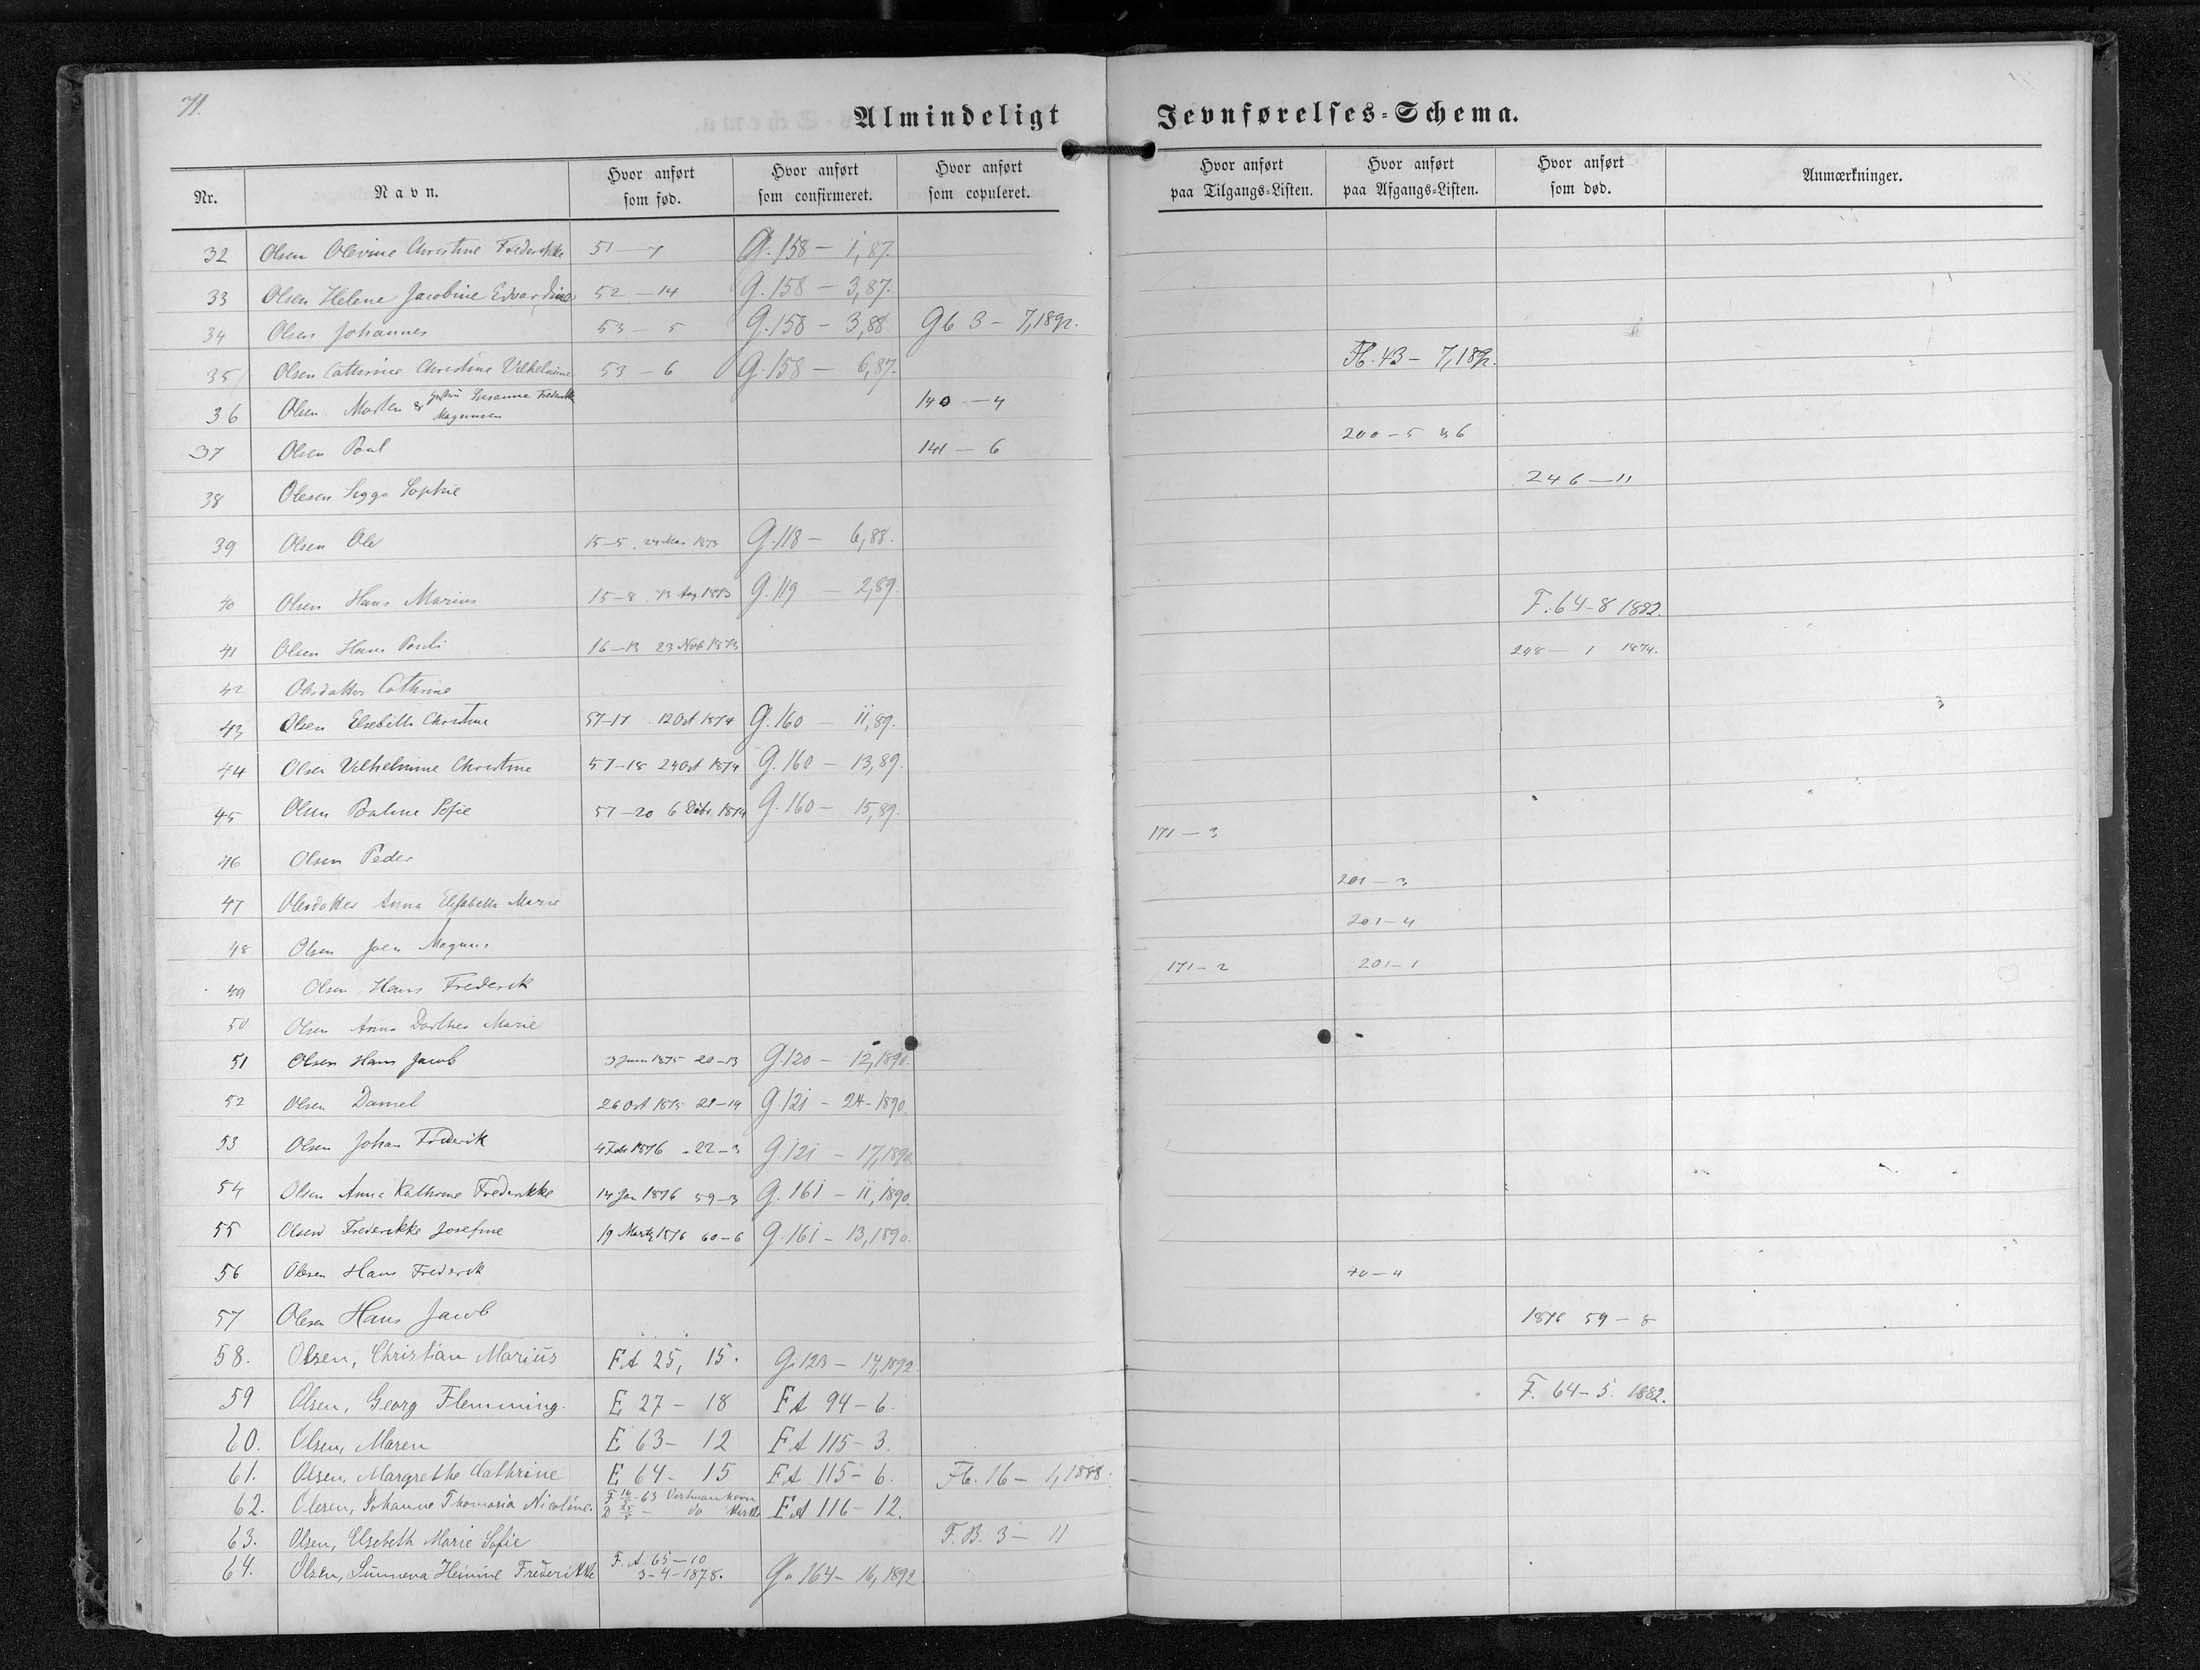 71.
Almindeligt Jevnførelses-Schema.
Nr. Navn. Hvor anført som fød. Hvor anført som confirmeret. Hvor anført som copuleret. Hvor anført paa Tilgangs-Listen. Hvor anført paa Afgangs-Listen. Hvor anført som død. Anmærkninger.
32 Olsen Olevine Christine Frederikke 51 - 7 G. 158 - 1,87.
33 Olsen Helene Jacobine Edvardine 52 - 14 G. 158 - 3,87.
34 Olsen Johannes 53 - 5 G. 158 - 3,88 Gb 3 - 7,1892.
35 Olsen Cathrine Christine Vilhelmine 53 - 6 G. 158 - 6,87. Fb. 43 - 7,1892.
36 Olsen Morten & Hustru Susanne Frederikke Magnusen 140 - 4
37 Olsen Poul 141 - 6 200 - 5 & 6
38 Olesen Sigga Sophie 246 - 11
39 Olsen Ole 15-5. 1873 G. 118 - 6,88.
40 Olsen Hans Marius 15-8. 13 Aug 1873 G. 119 - 2,89. F. 64-8 1882.
41 Olsen Hans Pauli 16-13 23 Novb 1873 248 - 1 1874.
42 Olesdatter Cathrine
43 Olsen Elsebeth Christine 57-17. 12 Oct 1874 G. 160 - 11,89.
44 Olsen Vilhelmine Christine 57-18 24 Oct 1874 G. 160 - 13,89.
45 Olsen Pouline Sofie 57-20 6 Dcbr. 1874 G. 160 - 15,89.
46 Olsen Peder 171 - 3
47 Olesdatter Anna Elisabeth Marie 201 - 3
48 Olsen Joen Magnus 201-4
49 Olsen Hans Frederik 171-2 201-1
50 Olsen Anna Dorthea Marie
51 Olsen Hans Jacob 3 Juni 1875 20-13 G. 120 - 12,1890.
52 Olsen Daniel 26 Oct 1875 21-19 G. 121 - 24-1890.
53 Olsen Johan Frederik 4 Feb 1876 - 22-3 G. 121 - 17,1890
54 Olsen Anna Kathrine Frederikke 14 Jan 1876 59-3 G. 161 - 11,1890.
55 Olsen Frederikke Josefine 19 Marts 1876 60-6 G. 161 - 13,1890.
56 Olsen Hans Frederik 40-4
57 Olesen Hans Jacob 1876 59-8
58. Olsen, Christian Marius FA 25, 15. G. 123 - 14,1892.
59 Olsen, Georg Flemming. E 27 - 18 FA 94-6. F. 64-5. 1882.
60. Olsen, Maren E 63- 12 FA 115-3.
61. Olsen, Margrethe Cathrine E 64- 15 FA 115-6. Fb. 16 - 1,1888.
62. Olesen, Johanne Thomasia Nicoline. 63 Vestmanhavn do Kirke FA 116-12.
63. Olsen, Elsebeth Marie Sofie F.B. 3 - 11
64. Olsen, Sunneva Heinine Frederikke F. A. 65-10 3-4-1878. G. 164- 16,1892.